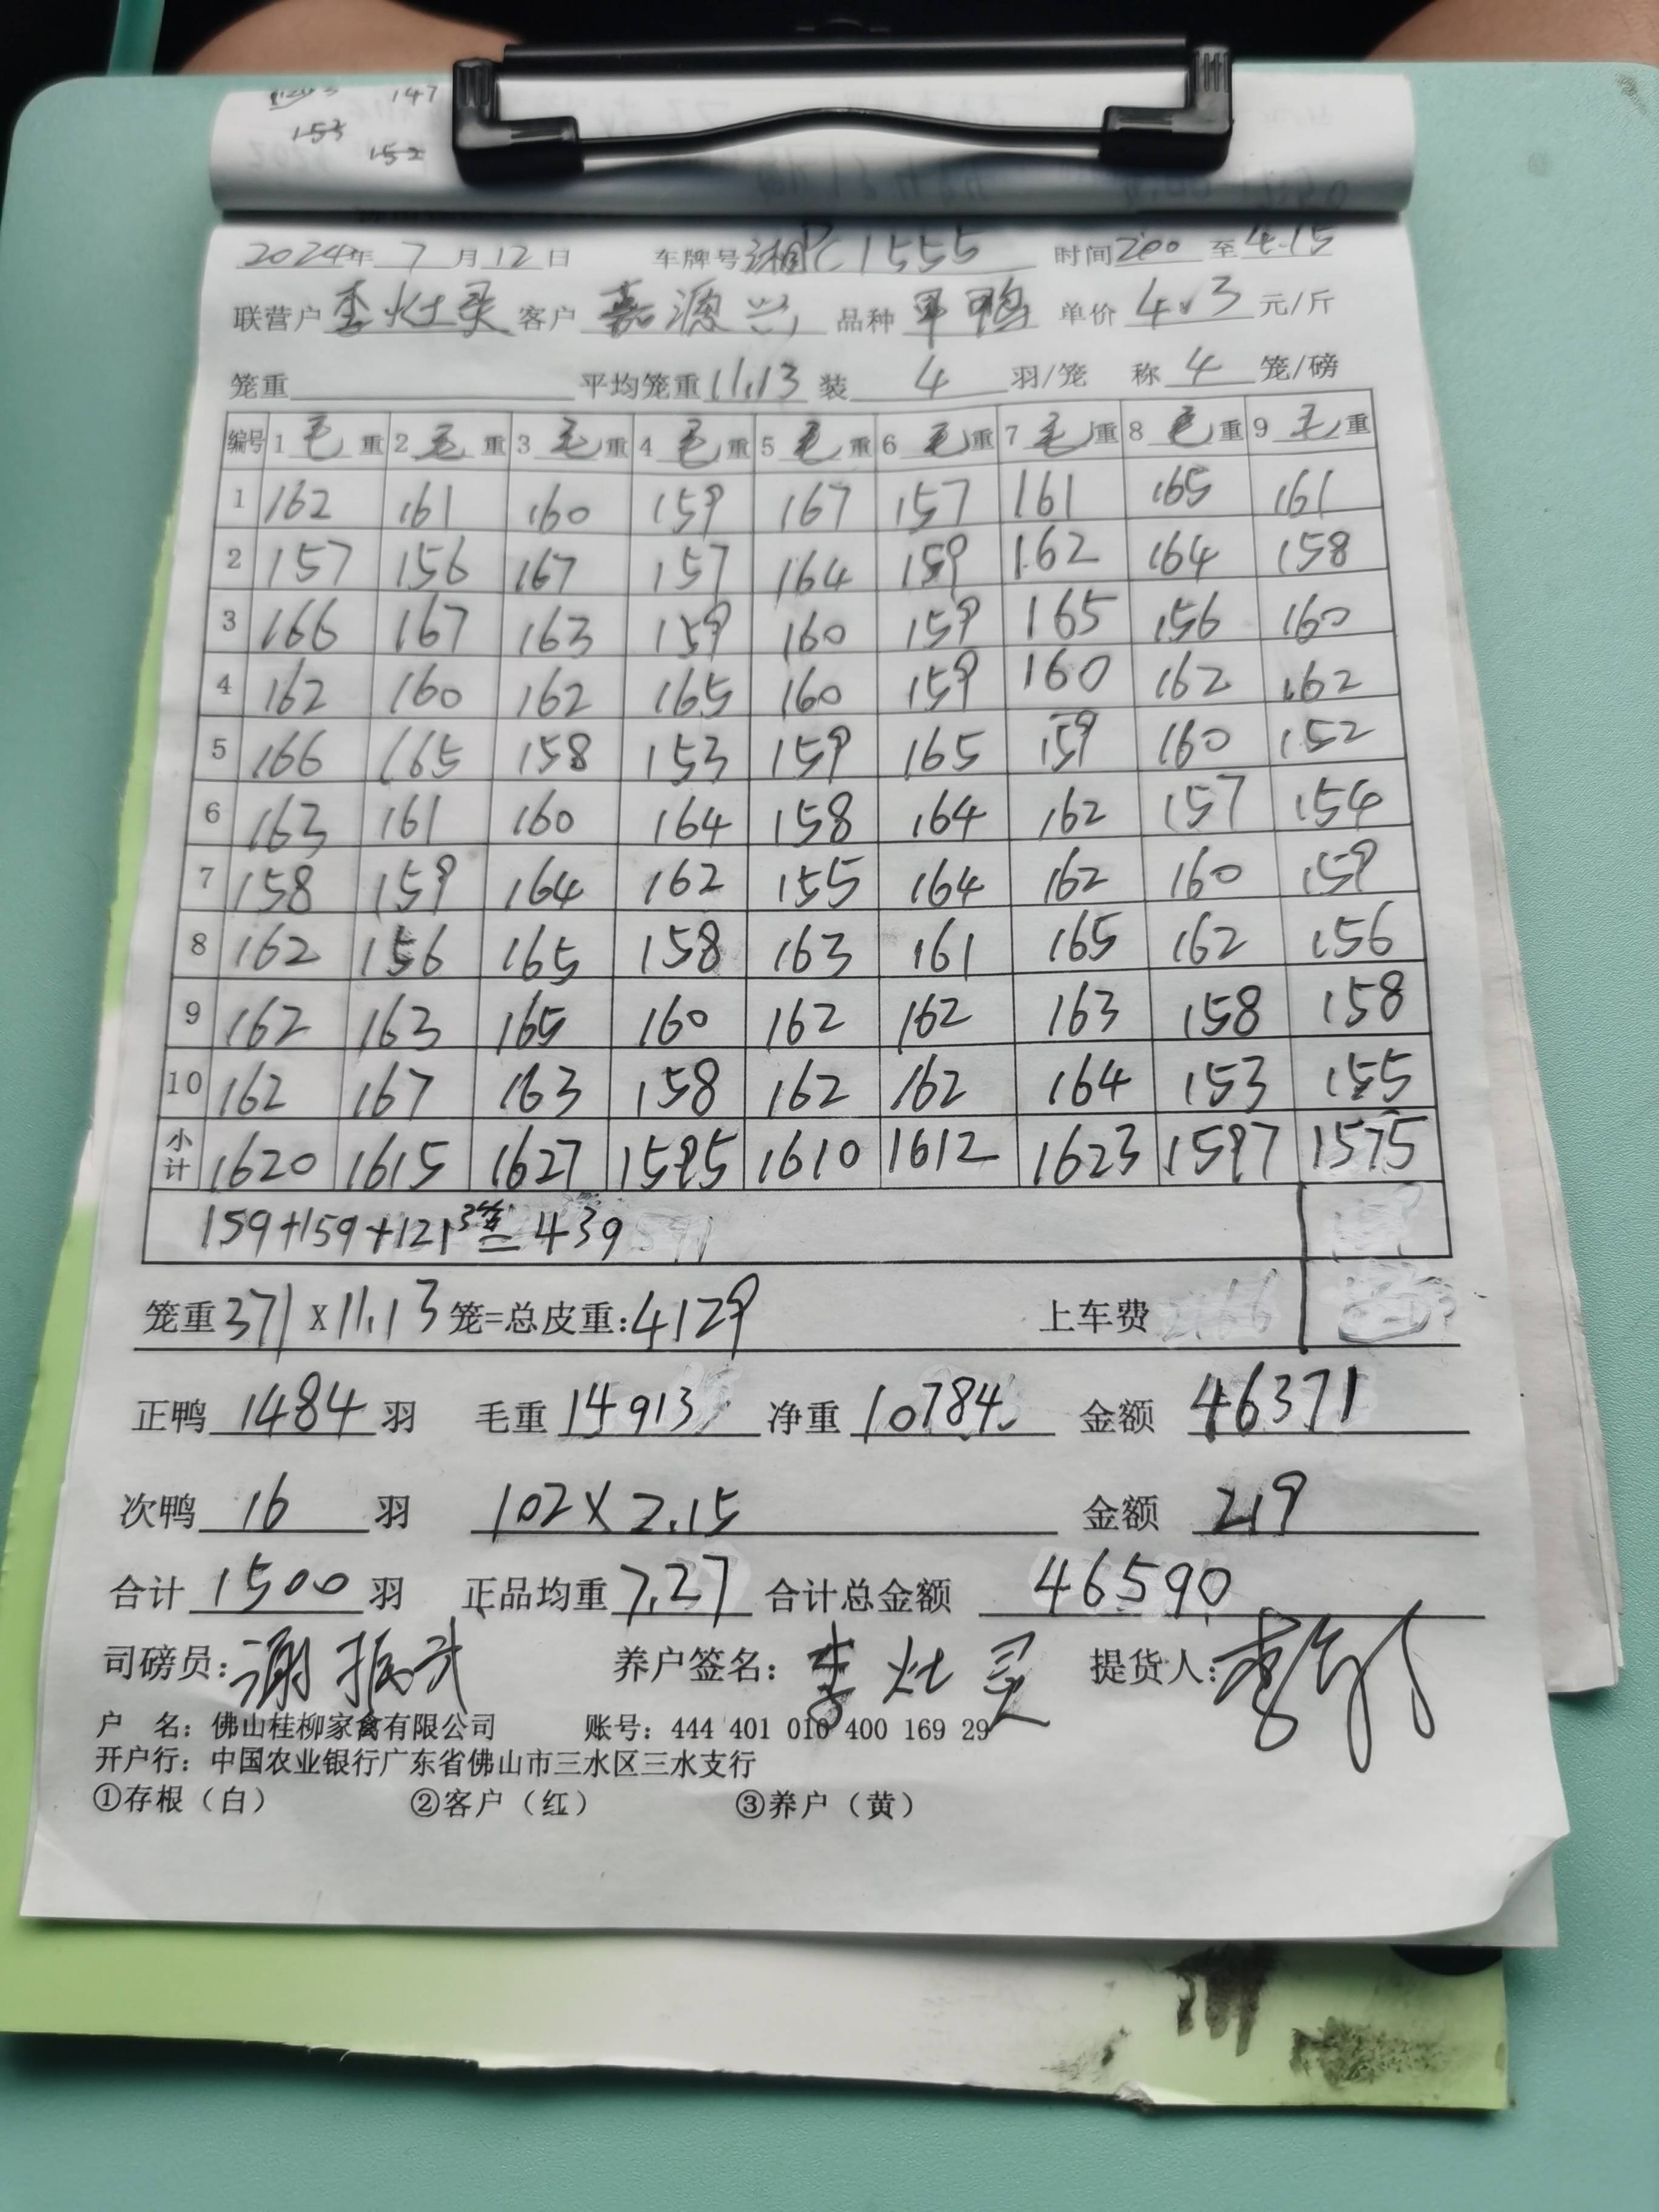 147
153
152
2024年 7 月 12 日 车牌号 湘 1555 时间 200 至 4.15
联营户 李灶灵 客户 嘉源兴 品种 单鸭 单价 4.3 元/斤
笼重 平均笼重 11.13 装 4 羽/笼 称 4 笼/磅
编号 1 毛 重 2 毛 重 3 毛 重 4 毛 重 5 毛 重 6 毛 重 7 毛 重 8 毛 重 9 毛 重
1 162 161 160 159 167 157 161 165 161
2 157 156 167 157 164 159 162 164 158
3 166 167 163 159 160 159 165 156 160
4 162 160 162 165 160 159 160 162 162
5 166 165 158 153 159 165 159 160 152
6 163 161 160 164 158 164 162 157 154
7 158 159 164 162 155 164 162 160 159
8 162 156 165 158 163 161 165 162 156
9 162 163 165 160 162 162 163 158 158
10 162 167 163 158 162 162 164 153 155
小计 1620 1615 1627 1595 1610 1612 1623 1597 1575
159+159+121 3笼 = 439
笼重 371 x 11.13 笼=总皮重: 4129 上车费
正鸭 1484 羽 毛重 14913 净重 10784 金额 46371
次鸭 16 羽 102 x 2.15 金额 219
合计 1500 羽 正品均重 7.27 合计总金额 46590
司磅员: 谢振武 养户签名: 李灶灵 提货人:
户 名: 佛山桂柳家禽有限公司 账号: 444 401 010 400 169 29
开户行: 中国农业银行广东省佛山市三水区三水支行
①存根（白） ②客户（红） ③养户（黄）